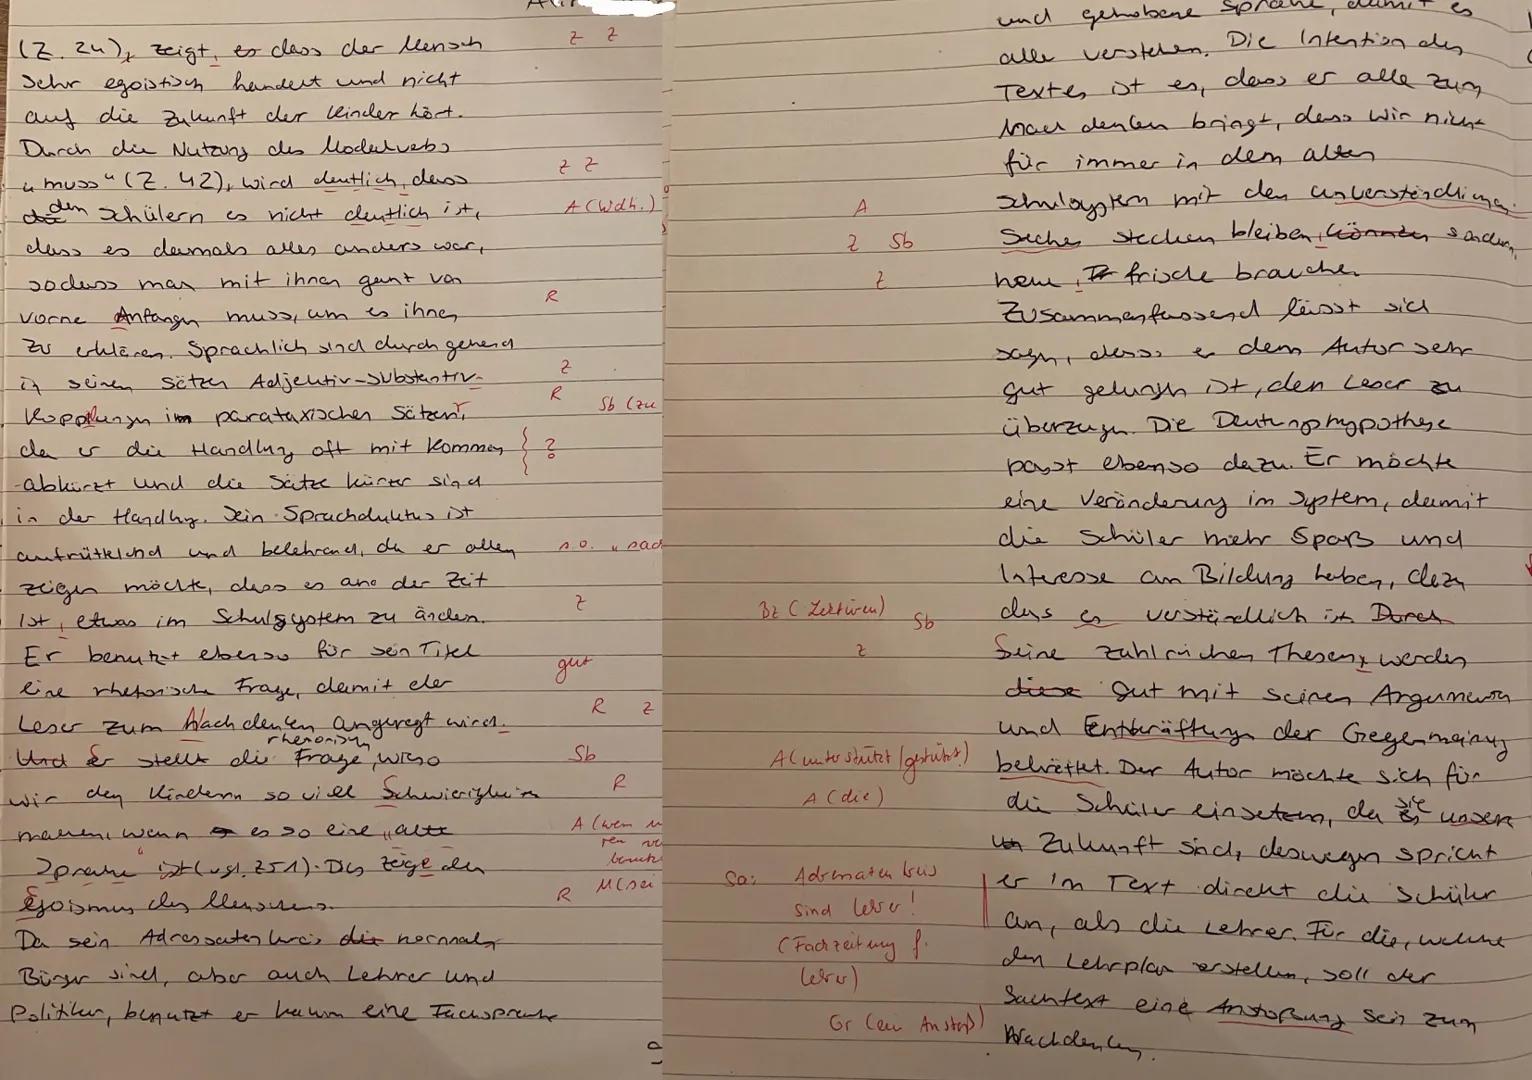 (Z. 24), zeigt, es dass der Mensch
sehr egoistisch handelt und nicht
auf die Zukunft der Kinder hört.
Durch die Nutzung des Modalverbs
„muss" (Z. 42), wird deutlich, dass
den Schülern es nicht deutlich ist,
dass es damals alles anders war,
sodass man mit ihnen ganz von
vorne Anfangen muss, um es ihnen
zu erklären. Sprachlich sind durchgehend
in seinen Sätzen Adjektiv-Substantiv-
Kopplungen im parataxischen Sätzen,
da er die Handlung oft mit Kommen
abkürzt und die Sätze kürzer sind
in der Handlung. Sein Sprachduktus ist
aufrüttelnd und belehrend, da er allen
zeigen möchte, dass es ane der Zeit
ist, etwas im Schulsystem zu ändern.
Er benutzt ebenso für sein Titel
eine rhetorische Frage, damit der
Leser zum Nachdenken angeregt wird.
Und Er stellt die rhetorisch Frage, wieso
wir den Kindern so viele Schwierigkeiten
machen, wenn es so eine „alte
Sprache" ist (vgl. Z 51). Dies zeige den
Egoismus des Menschens.
Da sein Adressatenkreis die normale
Bürger sind, aber auch Lehrer und
Politiker, benutzt er kaum eine Fachsprache
z z
z z
A (Wdh.)
R
z
R
Sb (zu
?
s.o. „sach
z
gut
R z
Sb
R
A (wen
R
und gehobene Sprache, damit es
alle verstehen. Die Intention des
Textes ist es, dass er alle zum
Nachdenken bringt, dass wir nicht
für immer in dem alten
Schulsystem mit den unverständlichen
Sachen stecken bleiben, können sondern,
neue, frische brauchen.
Zusammenfassend lässt sich
sagen, dass es dem Autor sehr
gut gelungen ist, den Leser zu
überzeugen. Die Deutungshypothese
passt ebenso dazu. Er möchte
eine Veränderung im System, damit
die Schüler mehr Spaß und
Interesse an Bildung haben, dazu
dass es verständlich ist. Durch
Seine zahlreichen Thesen, werden
diese gut mit seinen Argumenten
und Entkräftung der Gegenmeinung
bekräftet. Der Autor möchte sich für
die Schüler einsetzen, da sie unsere
Zukunft sind, deswegen spricht
er im Text direkt die Schüler
an, als die Lehrer. Für die, welche
den Lehrplan erstellen, soll der
Sachtext eine Anstoßung sein zum
Nachdenken.
A
z Sb
z
Bz (Lektüren)
Sb
z
A (unterstützt/gestützt)
A (die)
Sa: Adressatenkreis
sind Lehrer!
(Fachzeitung f.
Lehrer)
Gr (ein Anstoß)